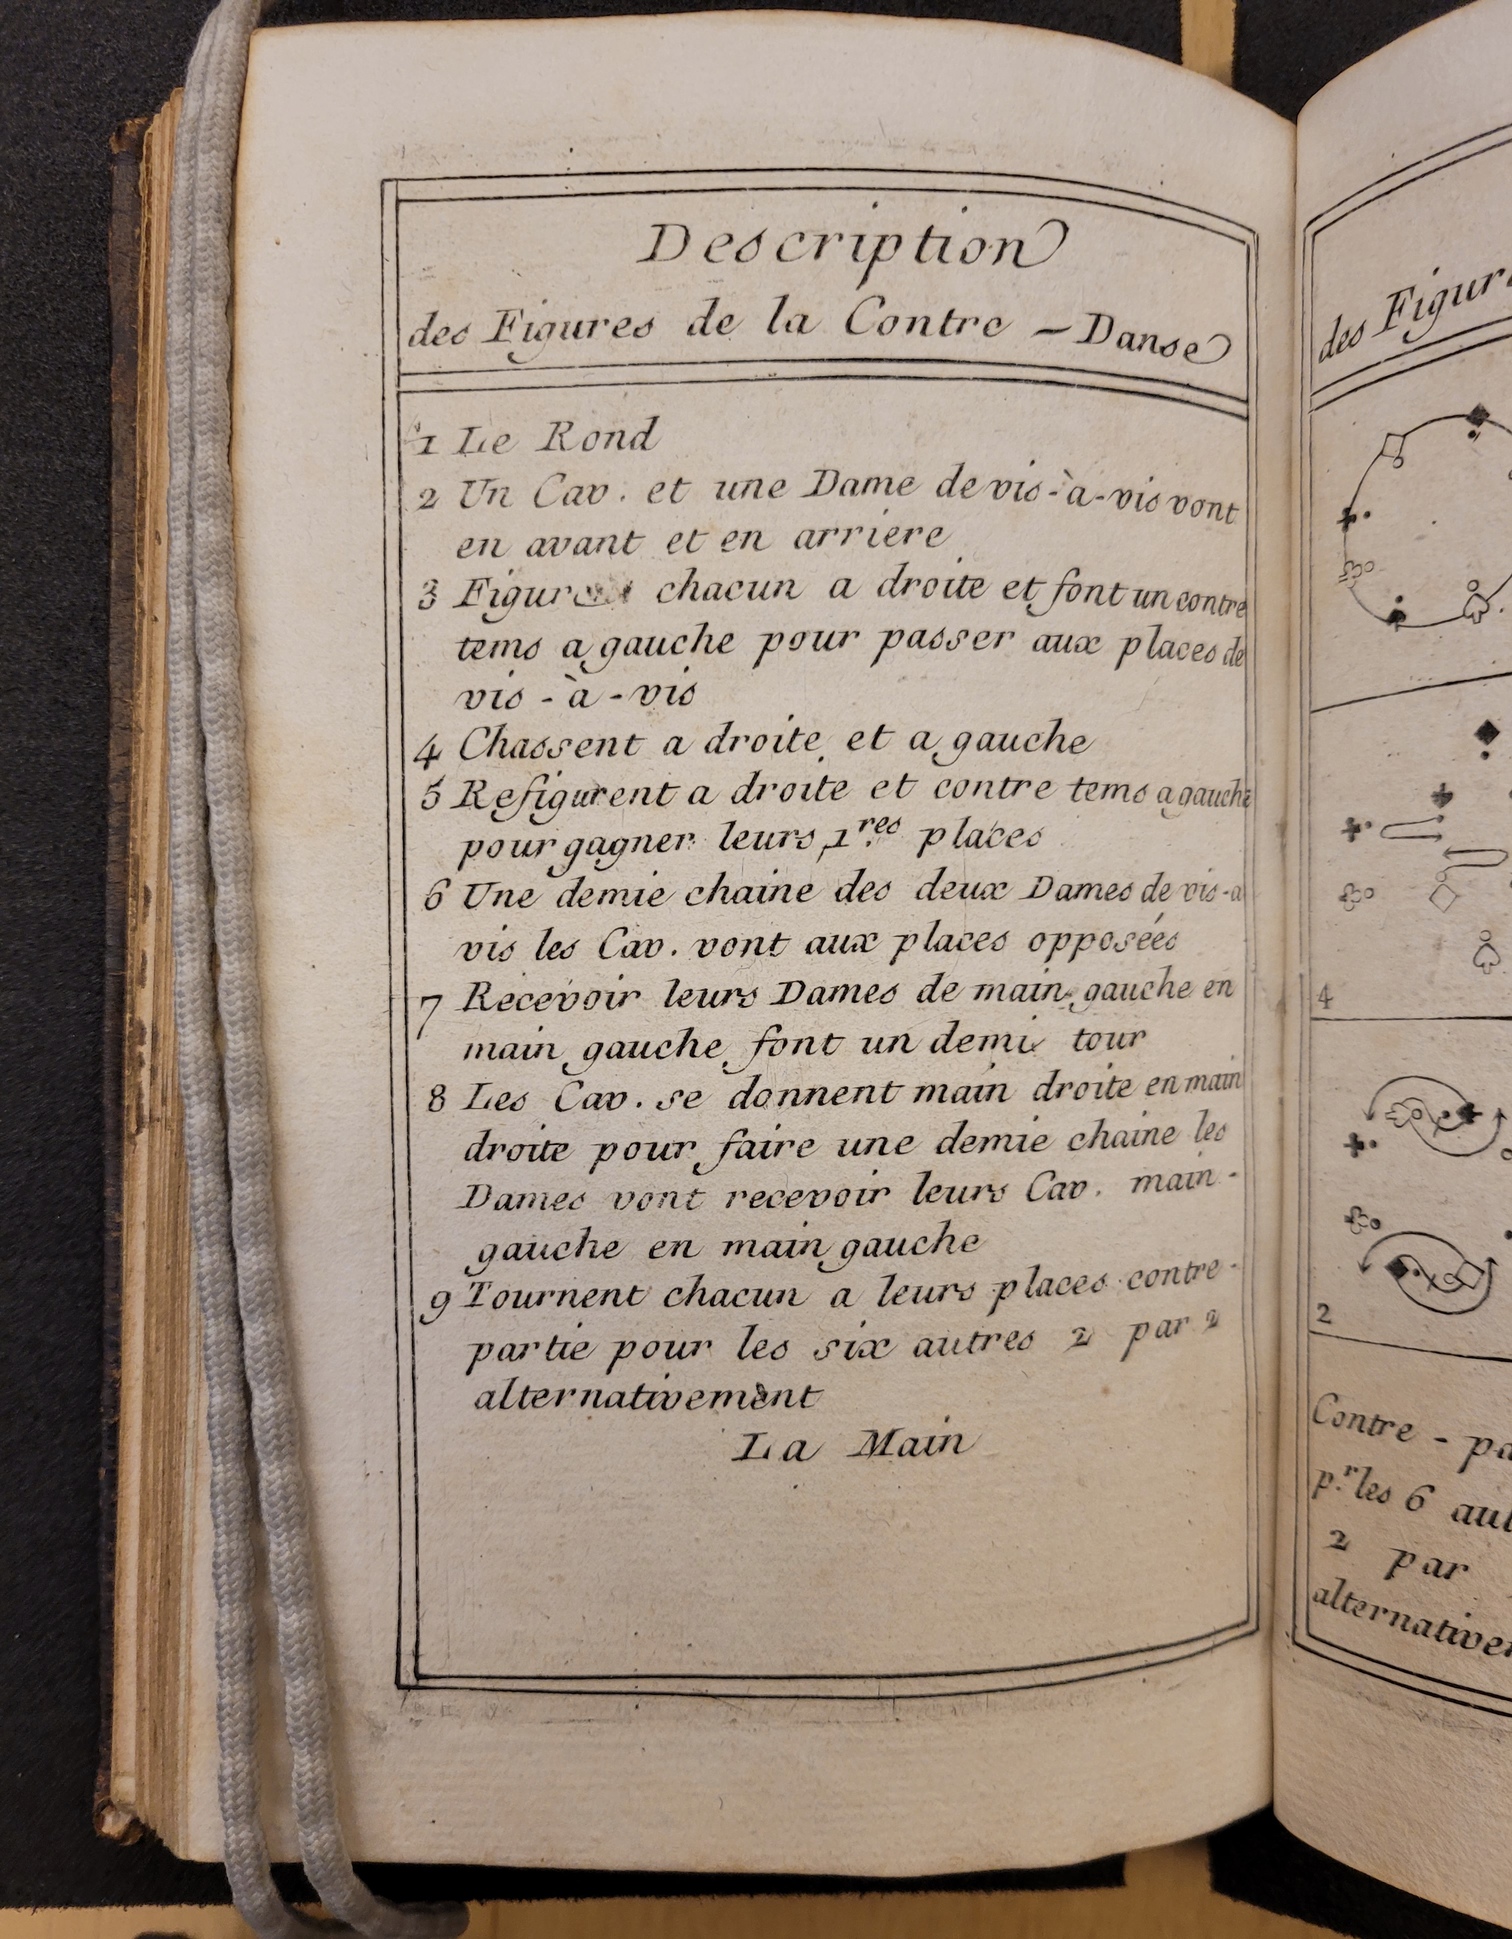 Description
des Figures de la Contre - Danse
1 Le Rond
2 Un Cav. et une Dame de vis-à-vis vont
en avant et en arriere
3 chacun a droite et font un contre
tems a gauche pour passer aux places de
vis-à-vis
4 Chassent a droite et a gauche
5 Refigurent a droite et contre tems a gauche
pour gagner leurs 1.res places
6 Une demie chaine des deux Dames de vis-a
vis les Cav. vont aux places opposées
7 Recevoir leurs Dames de main gauche en
main gauche font un demi tour
8 Les Cav. se donnent main droite en main
droite pour faire une demie chaine les
Dames vont recevoir leurs Cav. main-
gauche en main gauche
9 Tournent chacun a leurs places contre-
partie pour les six autres 2 par 2
alternativement
La Main
des
4
2
Contre -
p.r les 6
2 par